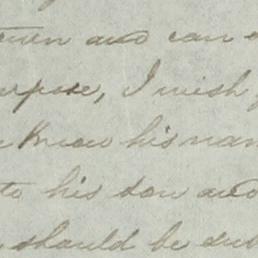 and can
I wish
Know his nam
to his son and
should be